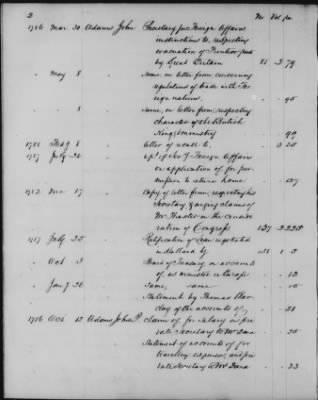 2
No. Vol. pa.
1786 Mar 20 Adams John Secretary for Foreign Affairs
instructions to, respecting
evacuation of Frontier posts
by Great Britain 81 2 79
" May 8 Same, on letter from, concerning
regulations of trade with For-
eign nations. " " 95
" " 8 Same, on letter from, respecting
character of the British
King & ministry " "
8 letter of recall to.
July 26 Foreign Affairs
on application of, for per-
mission to return home
17 Copy of letter from, respecting his
Secretary & urging claims of
Mr Thaxter on the conside-
ration of Congress
1787 July 25 Ratification of loan negotiated
in Holland by
" Oct 3 Board of Treasury on account
of, as minister in Europe
" 26 Same, same
Statement by Thomas Bar-
clay of the accounts of,
1786 Oct 12 Adams John Q. claim of, for salary as pri-
vate Secretary to Mr Dana
Statement of accounts of, for
travelling expenses, and pri-
vate Secretary to Mr Dana